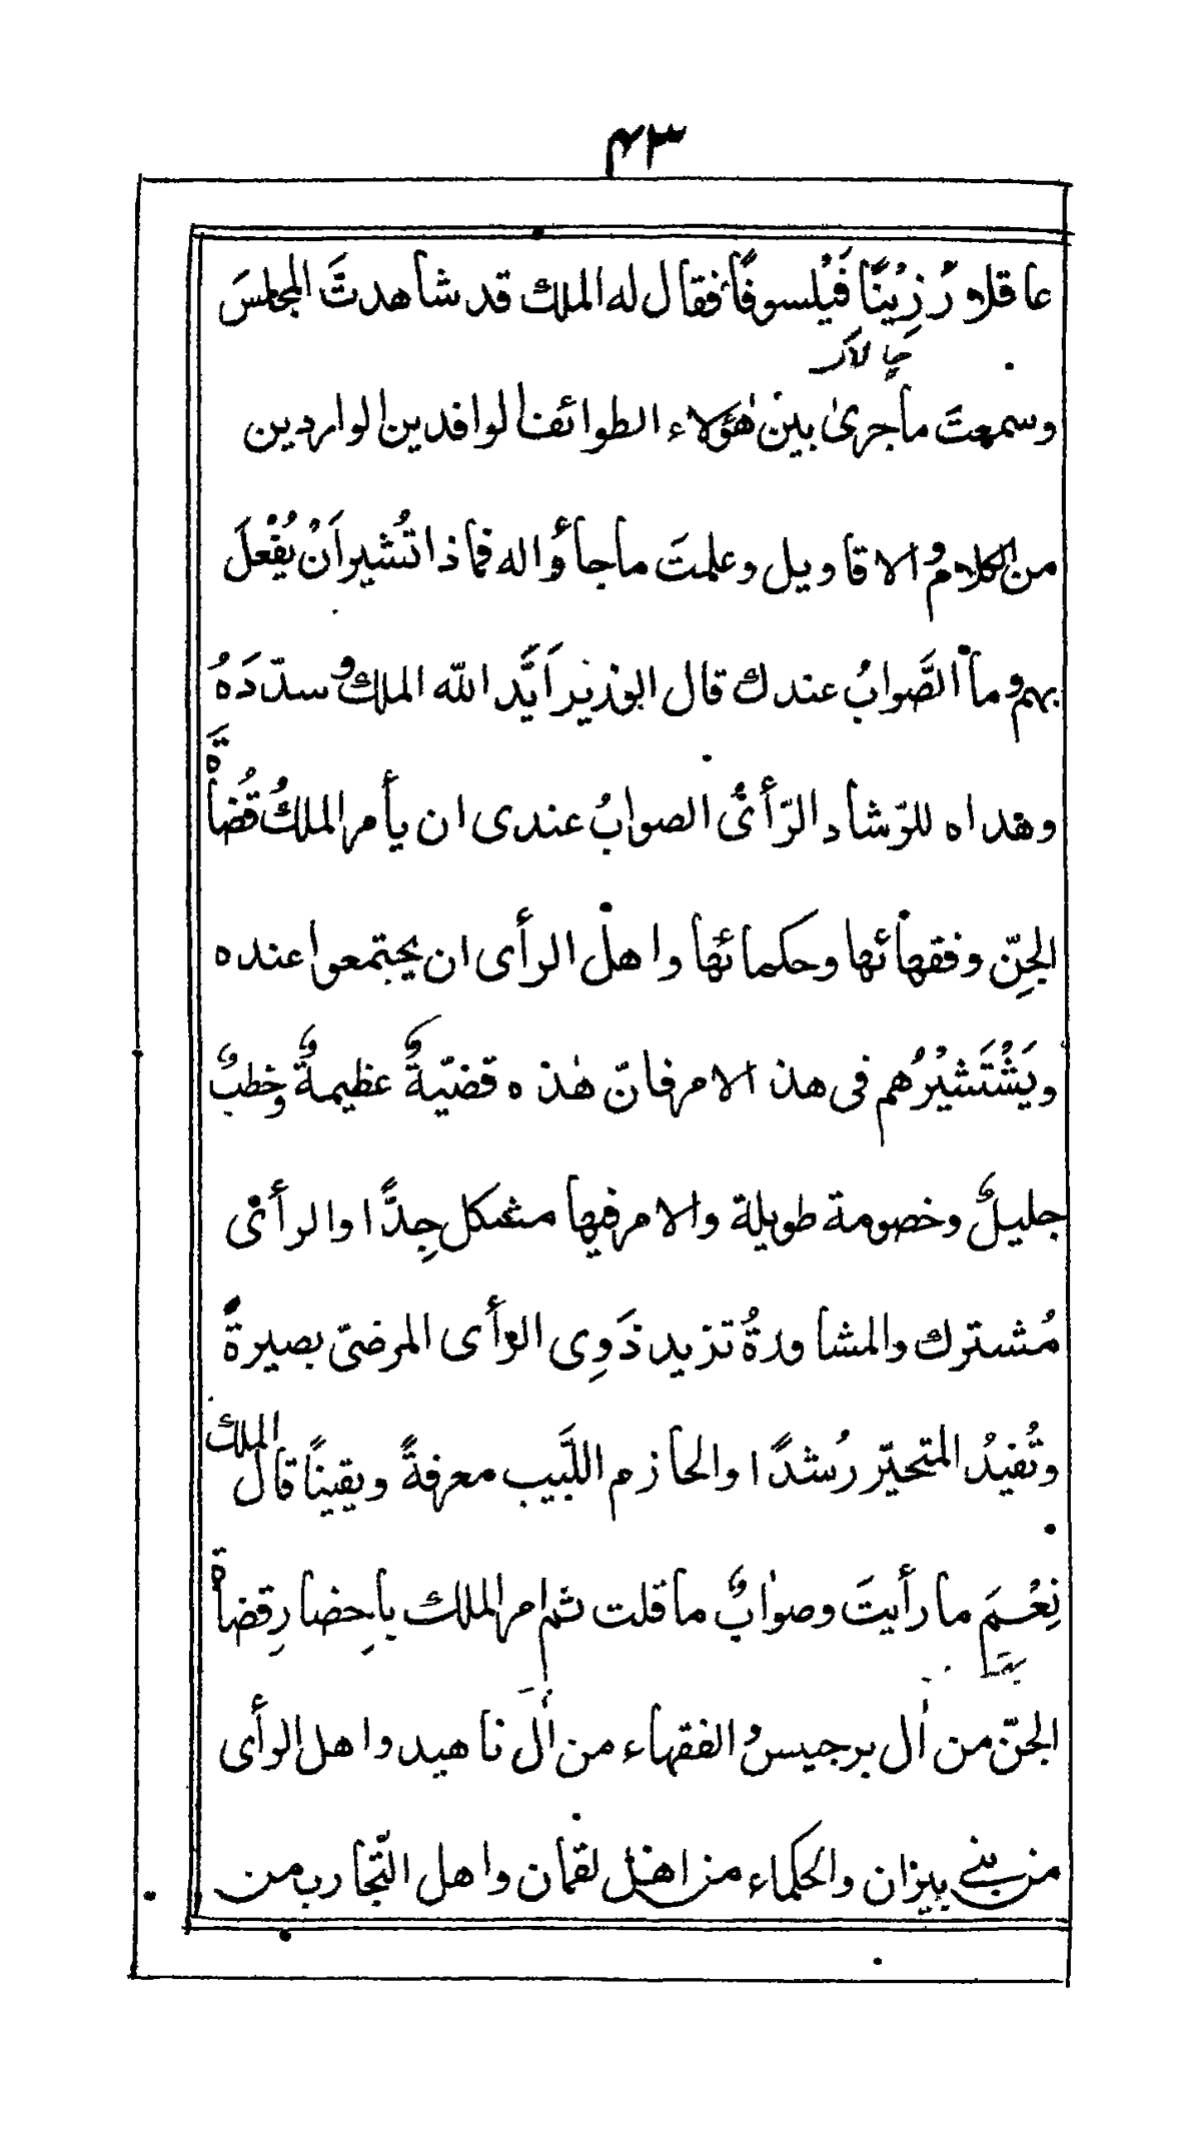 ۴۳
عاقلا رَزِيْنًا فَيْلسوفًا فقال له الملك قد شاهدتَّ المجلسَ
وسمعتَ ماجرىٰ بين هٰؤلاء الطوائف الوافدين الواردين
من الكلام والاقاويل وعلمتَ ماجاؤُا له فماذا تُشير اَنْ يُفْعلَ
بهم وما الصَّوابُ عندك قال الوزير اَيَّد الله الملك وسدّدَهُ
وهداه للرّشاد الرّأىُ الصوابُ عندى ان يأمر الملكُ قُضاةَ
الجِنّ وفقهائها وحكمائها واهل الرأى ان يجتمعوا عنده
ويَشْتَشيْرُهم فى هذ الامر فانّ هٰذه قضيّةٌ عظيمةٌ وخطبٌ
جليلٌ وخصومة طويلة والامر فيها مشكل جِدًّا والرأىُ
مُشترك والمشاورةُ تزيد ذَوِى الرأى المرضىّ بصيرةً
وتُفيدُ المتحيّر رُشدًا والحازم اللَّبيب معرفةً ويقينًا قال الملك
نِعْمَ ما رأيتَ وصوابٌ ما قلت ثم امر الملك باِحضارِ قضاة
الجنّ من اٰل برجيسُ والفقهاء من اٰل ناهيد واهل الرأى
من بنى بيزان والحكماء من اهل لقمان واهل التّجارب من